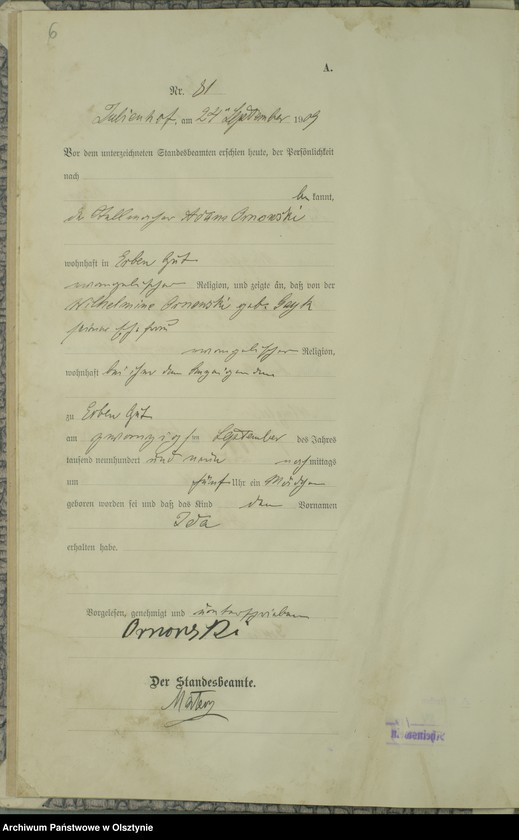 6
A.
Nr. 81
Julienhof, am 24ten September 1909
Vor dem unterzeichneten Standesbeamten erschien heute, der Persönlichkeit
nach
bekannt,
der Adam Ornowski
wohnhaft in Erben Gut
evangelischer Religion, und zeigte an, daß von der
Wilhelmine Ornowski geb.
seiner Ehefrau
evangelischer Religion,
wohnhaft bei ihm dem Anzeigenden
zu Erben Gut
am zwanzigsten September des Jahres
tausend neunhundert und neun nachmittags
um fünf Uhr ein Mädchen
geboren worden sei und daß das Kind den Vornamen
Ida
erhalten habe.
Vorgelesen, genehmigt und unterschrieben
Ornowski
Der Standesbeamte.
Archiwum Państwowe w Olsztynie